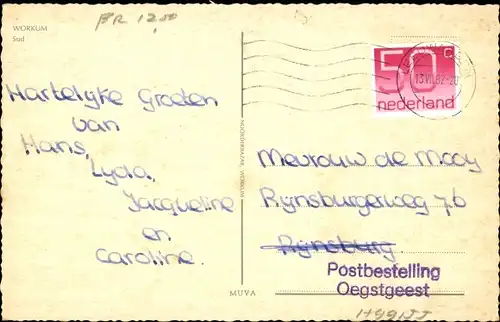 BR 12.00
WORKUM
Sud
50 c
nederland
13 VII.82
Hartelijke Groeten
van
Hans,
Lyda,
Jacqueline
en
Caroline.
NOORDERBAZAR, WORKUM
Mevrouw de Mooy
Rijnsburgerweg 76
Rijnsburg.
Postbestelling
Oegstgeest
MUVA